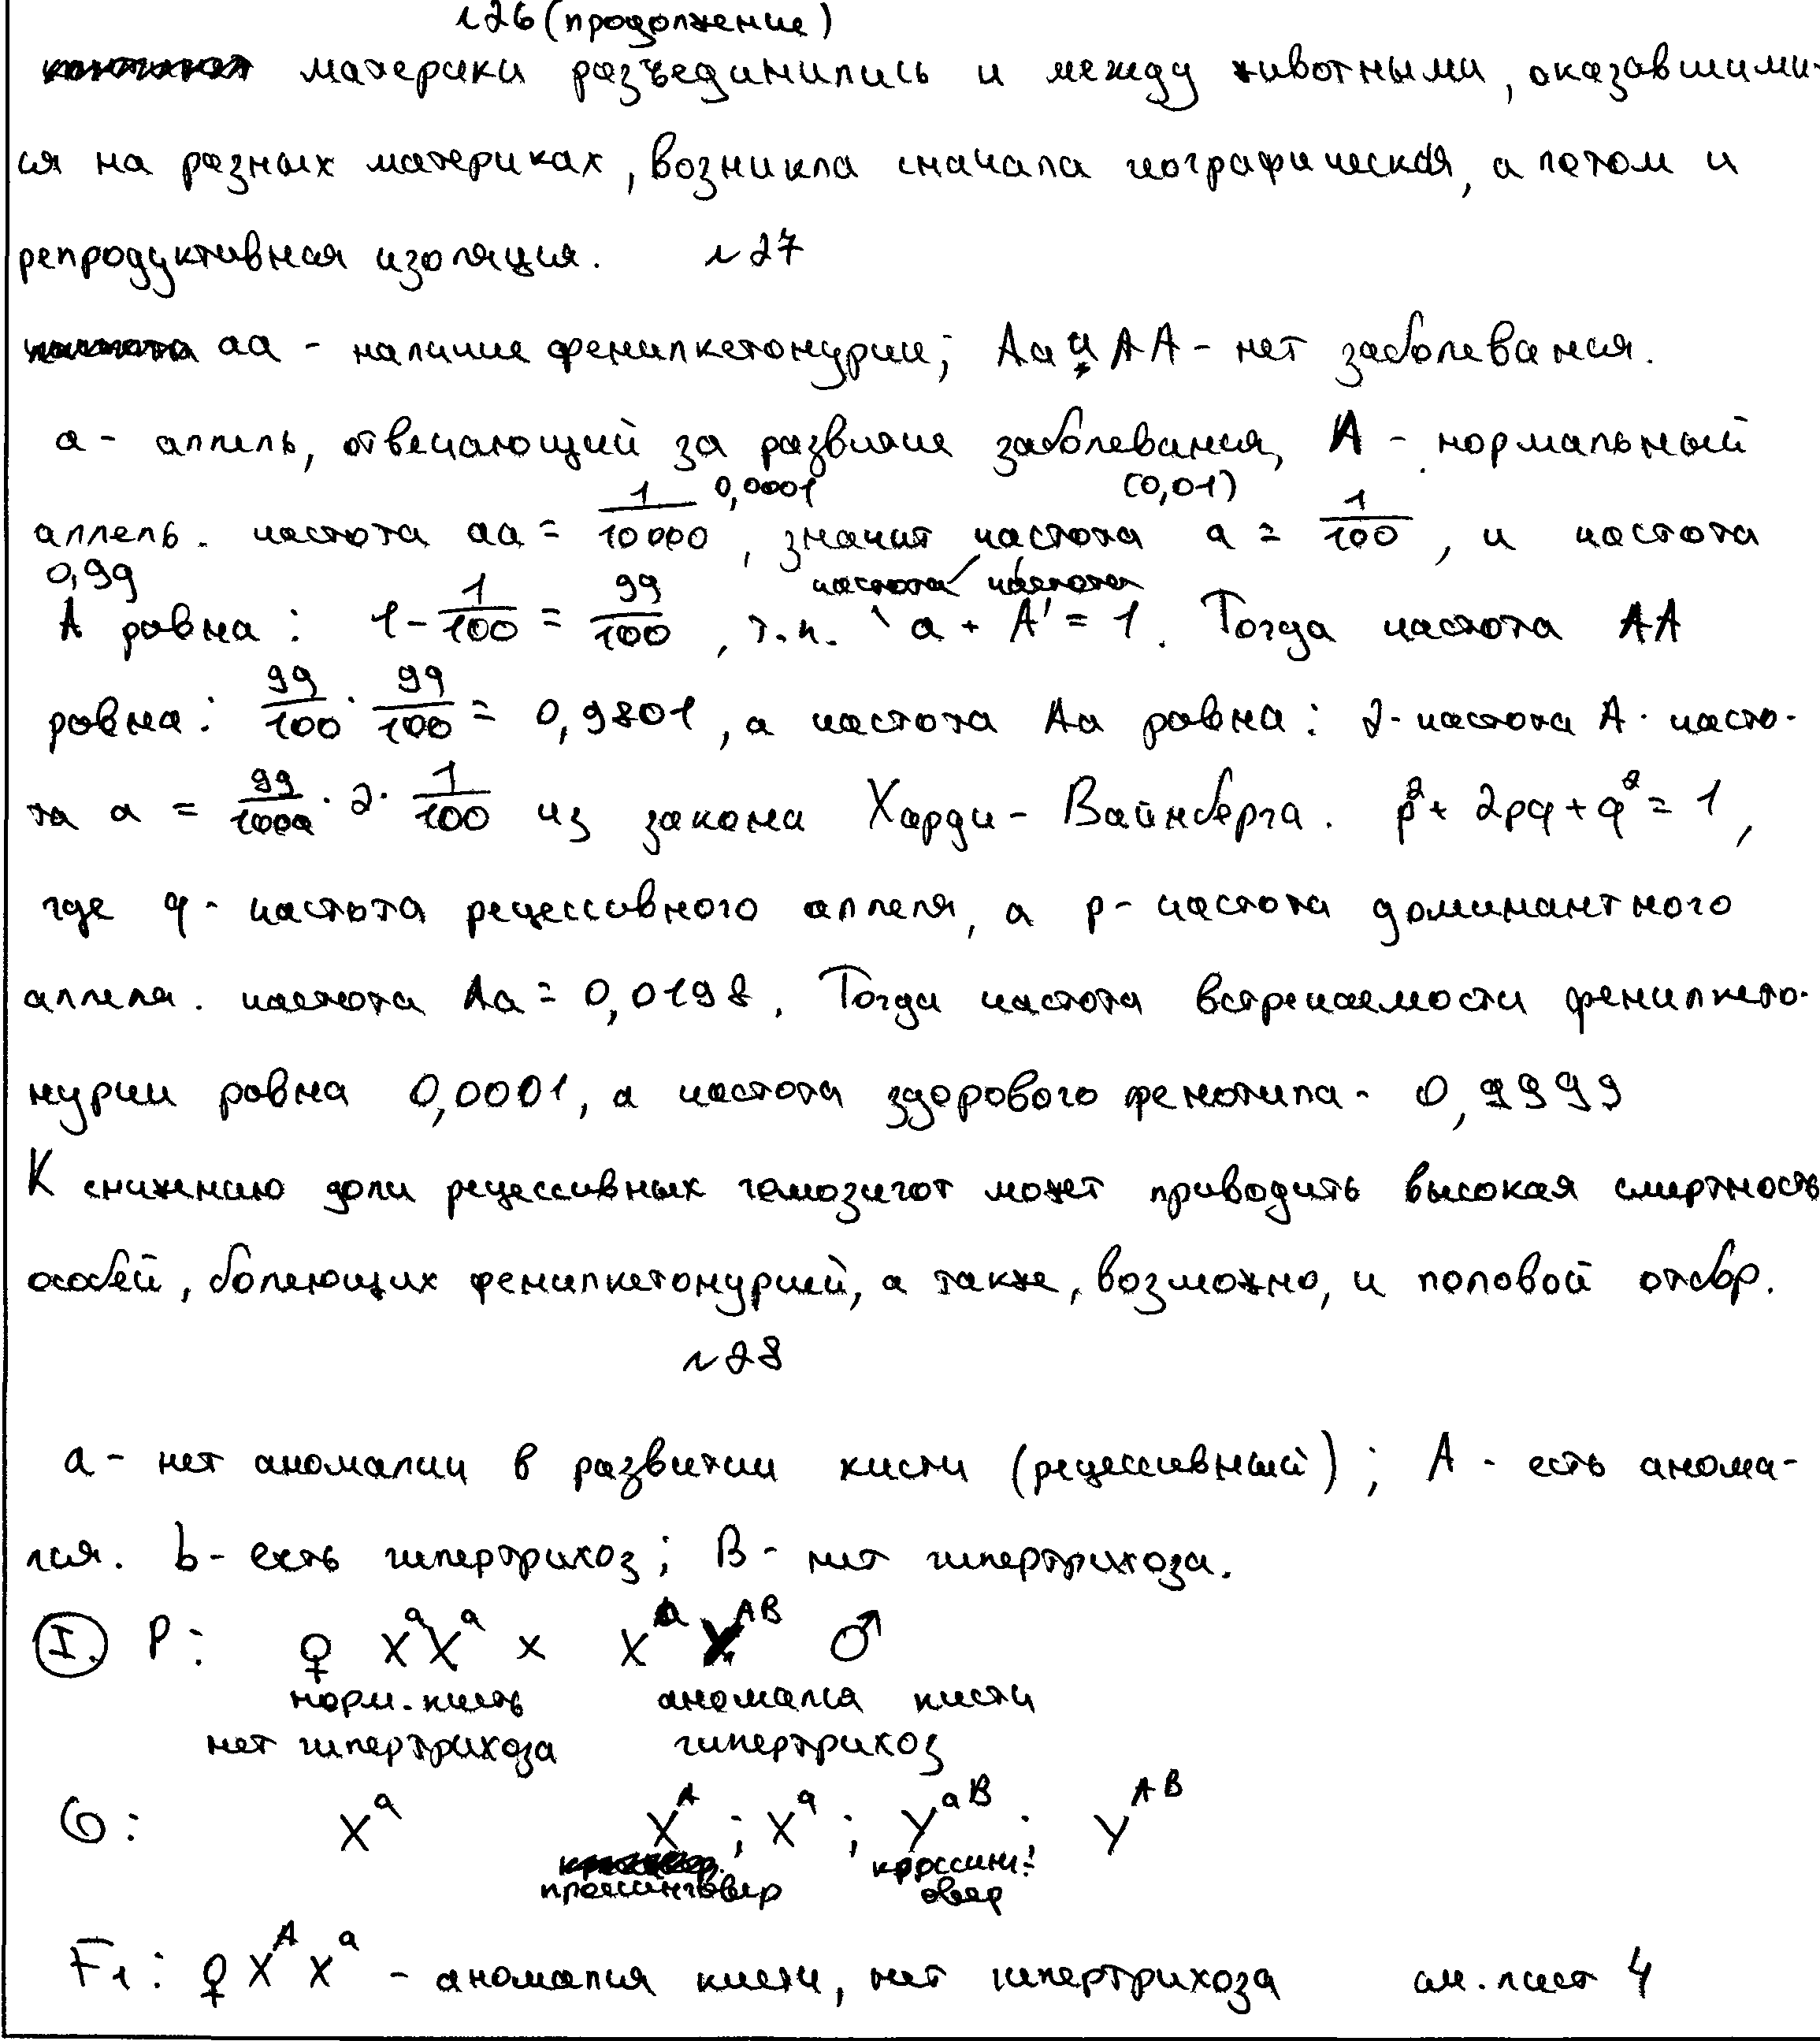 №26 (продолжение)
материки разъединились и между животными, оказавшими-
ся на разных материках, возникла сначала географическая, а потом и
репродуктивная изоляция. №27
аа - наличие фенилкетонурии; Аа и АА - нет заболевания.
а - аллель, отвечающий за развитие заболевания, А - нормальный
0,0001 (0,01)
аллель. частота аа = 1/10000, значит частота а = 1/100, и частота
0,99
А равна: 1 - 1/100 = 99/100, т.к. а + А = 1. Тогда частота АА
равна: 99/100 · 99/100 = 0,9801, а частота Аа равна: 2·частота А · часто-
та а = 99/100 · 2 · 1/100 из закона Харди-Вайнберга. p² + 2pq + q² = 1,
где q - частота рецессивного аллеля, а p - частота доминантного
аллеля. частота Аа = 0,0198. Тогда частота встречаемости фенилкето-
нурии равна 0,0001, а частота здорового фенотипа - 0,9999
К снижению доли рецессивных гомозигот может приводить высокая смертность
особей, болеющих фенилкетонурией, а также, возможно, и половой отбор.
№28
а - нет аномалии в развитии кисти (рецессивный); А - есть анома-
лия. b - есть гипертрихоз; B - нет гипертрихоза.
I. P: ♀ XᵃXᵃ x XᵃYᴬᴮ ♂
норм. кисть аномалия кисти
нет гипертрихоза гипертрихоз
G: Xᵃ Xᴬ; Xᵃ; Yᵃᴮ; Yᴬᴮ
кроссинговер кроссинг-
овер
F₁: ♀ XᴬXᵃ - аномалия кисти, нет гипертрихоза см. лист 4